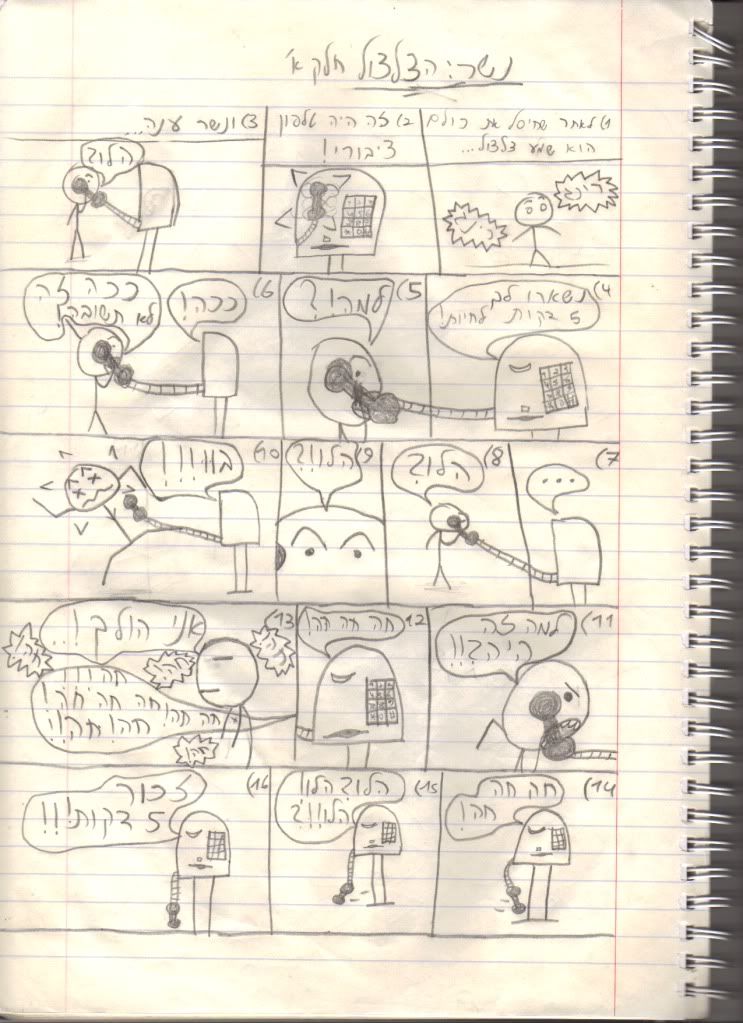 נשר: הצלצול חלק א'
1) לאחר שחיסל את כולם
הוא שמע צלצול...
רינג
2) זה היה טלפון
ציבורי!
3) ונשר ענה...
הלו?
4) נשארו לך
5 דקות לחיות!
5) למה?!
6) ככה!
ככה זה
לא תשובה!
7) ...
8) הלו?
9) הלו?!
10) בוו!!!
11) למה זה
היה?!!
12) חה חה חה!
13) אני הולך!..
חה!!!
חה! חה חה חה!
חה! חה!
14) חה חה
חה!
15) הלו? הלו!
הלו!!?
16) זכור
5 דקות!!!